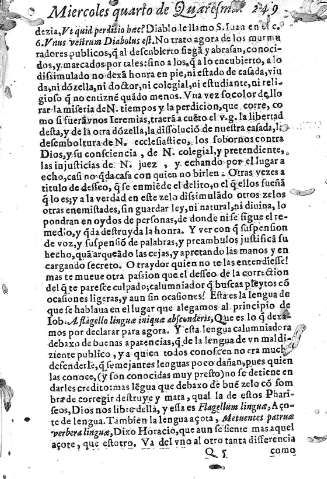 Miercoles quarto de Quaresma. 249
dezia, Vt quid perditio hæc? Diablo le llamo S. Iuan en el c.
6. Vnus vestrum Diabolus est. No trato agora de los murmu
radores publicos, q̃ al descubierto siegã y abrasan, conoci-
dos, y marcados por tales: sino a los, q̃ a lo encubierto, a lo
dissimulado no dexã honra en pie, ni estado de casada, viu
da, ni dõzella, ni doctor, ni colegial, ni estudiante, ni reli-
gioso q̃ no entiznẽ quãdo menos. Vna vez so color de llo-
rar la miseria de N. tiempos y la perdicion, que corre, co
mo si fuerã vnos Ieremias, traerã a cuẽto el v.g. la libertad
desta, y de la otra dõzella, la dissoluciõ de nuestra casada, la
desemboltura de N. ecclesiastico, los sobornos contra
Dios, y su consciencia, de N. colegial, y pretendientes,
las injusticias de N. juez, y echando por el lugar a
echo, casi no q̃da casa con quien no birlen. Otras vezes a
titulo de desseo, q̃ se enmiẽde el delito, o el q̃ ellos sueñã
q̃ lo es; y a la verdad en este zelo dissimulado otros zelos
otras enemistades, sin guardar ley, ni natural, ni diuina, lo
pondran en oydos de personas, de donde ni se sigue el re-
medio, y q̃da destruyda la honra. Y ver con q̃ suspension
de voz, y suspensiõ de palabras, y preambulos justifica su
hecho, quã arqueado las cejas, y apretando las manos y en
cargando secreto. O traydor quien no te las entendiesse!
mas te mueue otra passion que el desseo de la correctiõ
del q̃ te paresce culpado; calumniador q̃ buscas pleytos cõ
ocasiones ligeras, y aun sin ocasiones! Esta es la lengua de
que se hablaua en el lugar que alegamos al principio de
Iob. A flagello linguæ iniquæ abscunderis, Que es lo q̃ dexa-
mos por declarar para agora. Y esta lengua calumniadora
debaxo de buenas aparencias, q̃ de la lengua de vn maldi-
ziente publico, y a quien todos conoscen no era mucho
defenderle, q̃ semejantes lenguas poco dañan, pues quien
las conoce, (y son conocidas muy presto) no se detiene en
darles credito: mas lẽgua que debaxo de buẽ zelo cõ som
bra de corregir destruye y mata, qual la de estos Phari-
seos, Dios nos libre della, y essa es Flagellum linguæ, Aço-
te de lengua. Tambien la lengua açota, Metuentes patruæ
verbera linguæ, Dixo Horacio, que aun se siente mas aquel
açote, que estotro. Va del vno al otro tanta differencia
Q 5 como